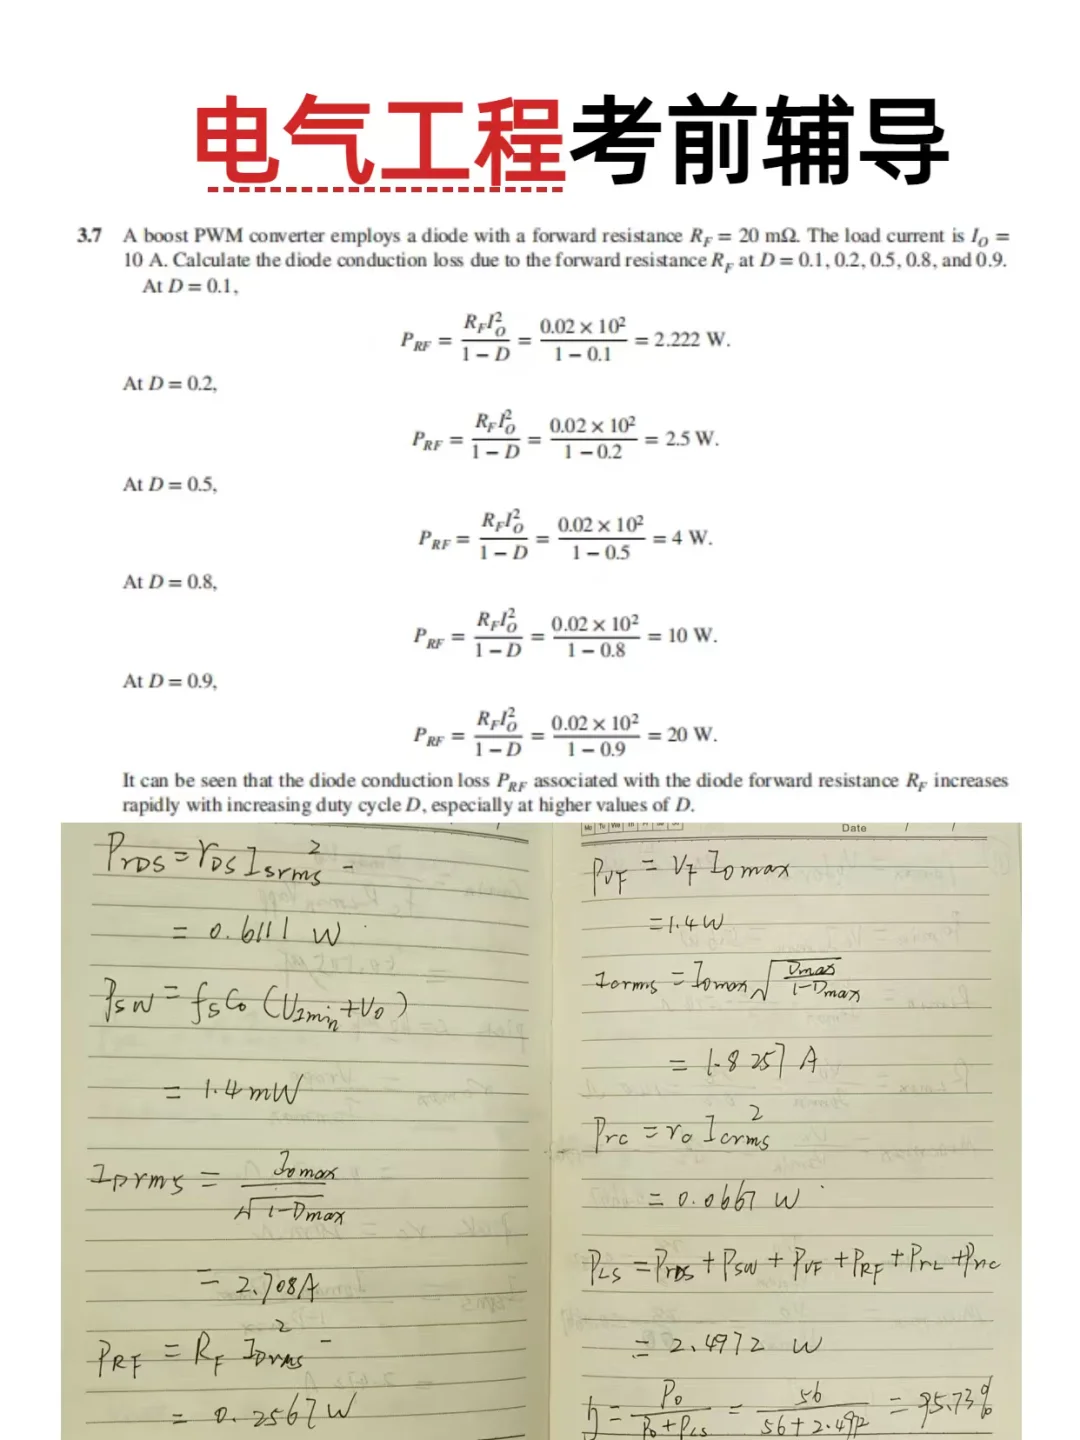 电气工程考前辅导
3.7 A boost PWM converter employs a diode with a forward resistance R_F = 20 mΩ. The load current is I_O =
10 A. Calculate the diode conduction loss due to the forward resistance R_F at D = 0.1, 0.2, 0.5, 0.8, and 0.9.
At D = 0.1,
P_RF = R_F I_O^2 / (1 − D) = 0.02 × 10^2 / (1 − 0.1) = 2.222 W.
At D = 0.2,
P_RF = R_F I_O^2 / (1 − D) = 0.02 × 10^2 / (1 − 0.2) = 2.5 W.
At D = 0.5,
P_RF = R_F I_O^2 / (1 − D) = 0.02 × 10^2 / (1 − 0.5) = 4 W.
At D = 0.8,
P_RF = R_F I_O^2 / (1 − D) = 0.02 × 10^2 / (1 − 0.8) = 10 W.
At D = 0.9,
P_RF = R_F I_O^2 / (1 − D) = 0.02 × 10^2 / (1 − 0.9) = 20 W.
It can be seen that the diode conduction loss P_RF associated with the diode forward resistance R_F increases
rapidly with increasing duty cycle D, especially at higher values of D.
P_rDS = r_DS I_Srms^2
= 0.6111 W
P_SW = f_s C_o (V_Imin + V_o)
= 1.4 mW
I_Drms = I_omax / √(1−D_max)
= 2.708A
P_RF = R_F I_Drms^2
= 0.2567 W
Date / /
P_VF = V_F I_omax
= 1.4 W
I_crms = I_omax √(D_max / (1−D_max))
= 1.8257 A
P_rc = r_o I_crms^2
= 0.0667 W
P_LS = P_rDS + P_SW + P_VF + P_RF + P_rL + P_rc
= 2.4972 W
η = P_o / (P_o + P_LS) = 56 / (56 + 2.4972) = 95.73%